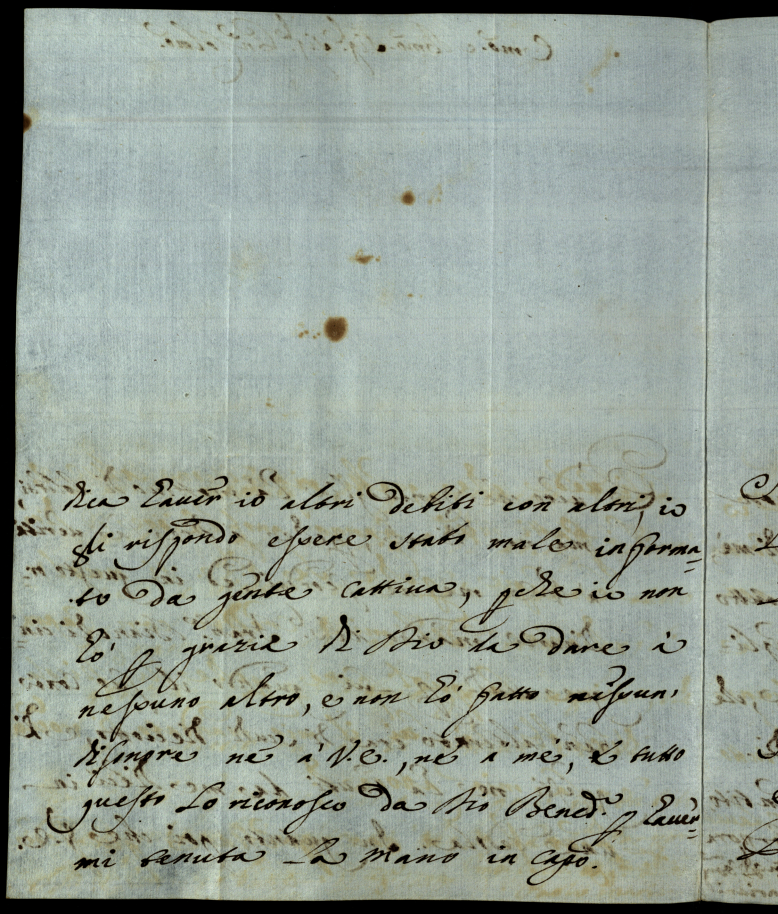 dica haver io altri debiti con altri, io
gli rispondo essere stato male informa=
to da gente cattiva, p che io non
hò p grazia di Dio da dare à
nessuno altro, e non hò fatto nessun
disonore nè à V.E., nè a mé, e tutto
questo lo riconosco da Dio Bened.º p haver=
mi tenuta la mano in capo.